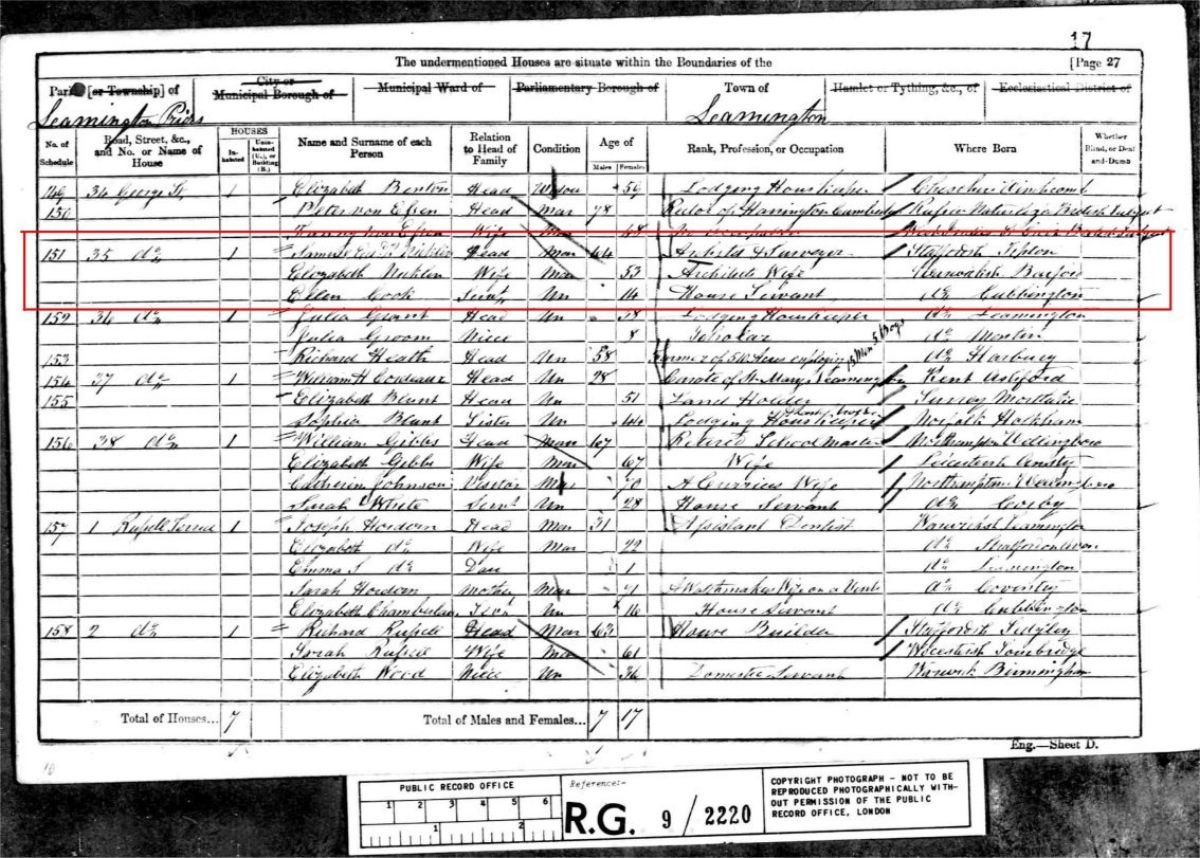 17
The undermentioned Houses are situate within the Boundaries of the [Page 27
Parish [or Township] of City or Municipal Borough of Municipal Ward of Parliamentary Borough of Town of Hamlet or Tything, &c., of Ecclesiastical District of
Leamington Priors Leamington
No. of Schedule Road, Street, &c., and No. or Name of House HOUSES Inhabited Uninhabited (U.), or Building (B.) Name and Surname of each Person Relation to Head of Family Condition Age of Males Females Rank, Profession, or Occupation Where Born Whether Blind, or Deaf-and-Dumb
149 34 George St 1 Elizabeth Benton Head Widow 59 Lodging Housekeeper
150 Peter von Essen Head Mar 78 Rector of Harrington
Fanny von Essen Wife Mar 48 No occupation
151 35 do 1 Samuel Nicklin Head Mar 44 & Surveyor Staffordsh Tipton
Elizabeth Nicklin Wife Mar 53 Architects Wife Warwicksh Barford
Ellen Cook Servt Un 14 House Servant do Cubbington
152 36 do 1 Julia Grant Head Un 38 Lodging Housekeeper do Leamington
Julia Groom Niece 8 Scholar do
153 Richard Heath Head Un 58 Farmer of Acres employing 13 Men 5 Boys do Harbury
154 37 do 1 William H Head Un 28 Curate of St Mary Leamington Kent Ashford
155 Elizabeth Blunt Head Un 51 Land Holder Surrey Mortlake
Sophia Blunt Sister Un 44 Lodging Norfolk Holkham
156 38 do 1 William Gibbs Head Mar 67 Retired School Master Northampton
Elizabeth Gibbs Wife Mar 67 Wife Leicestersh
Catherine Johnson Visitor Mar 70 A Curriers Wife Northampton
Sarah White Servt Un 28 House Servant do Corby
157 1 Russell Terrace 1 Joseph Hordern Head Mar 31 Assistant Dentist Warwicksh Leamington
Elizabeth do Wife Mar 22 do Stratford on Avon
Emma S do Dau 1 do Leamington
Sarah Hordern Mother Mar 71 A Watchmakers Wife on a Visit do Coventry
Elizabeth Chamberlain Servt Un 16 House Servant do Cubbington
158 2 do 1 Richard Russell Head Mar 63 House Builder Staffordsh Sedgley
Sarah Russell Wife Mar 61 Worcestersh
Elizabeth Wood Niece Un 36 Domestic Servant Warwick Birmingham
Total of Houses... 7 Total of Males and Females... 7 17
Eng.—Sheet D.
PUBLIC RECORD OFFICE
1 2 3 4 5 6
1 2
Reference:-
R.G. 9 / 2220
COPYRIGHT PHOTOGRAPH - NOT TO BE
REPRODUCED PHOTOGRAPHICALLY WITH-
OUT PERMISSION OF THE PUBLIC
RECORD OFFICE, LONDON